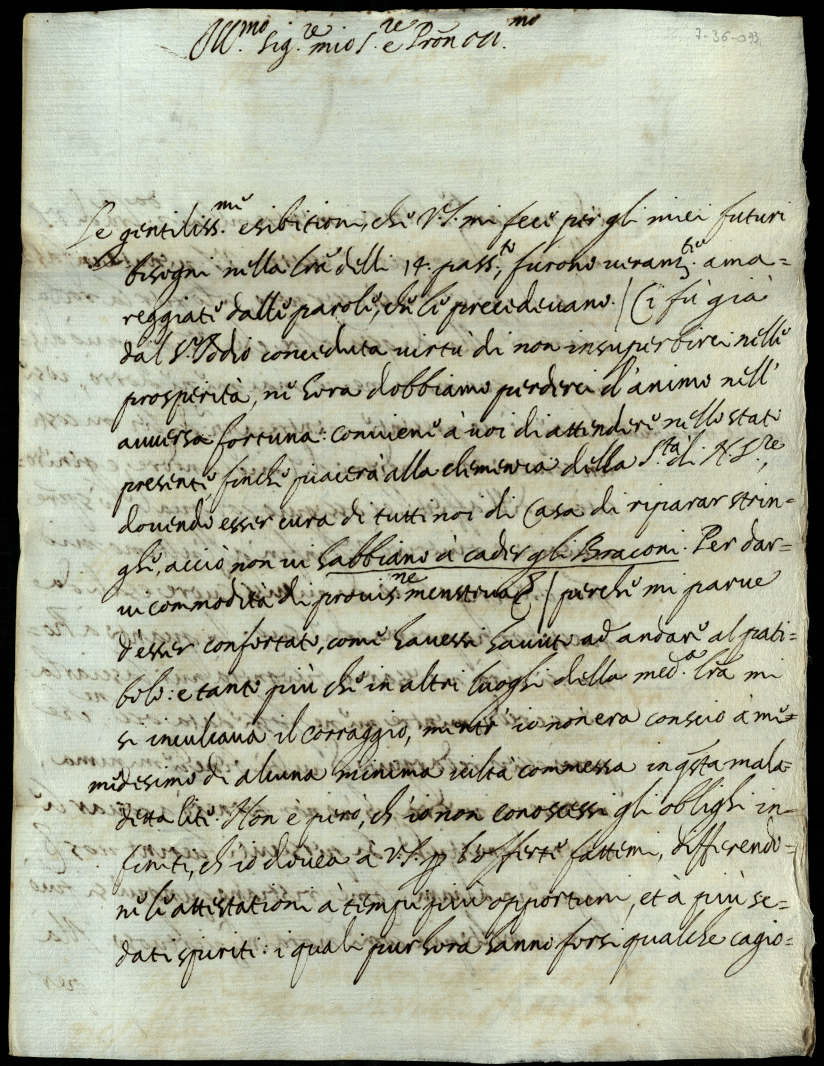 7-36-093
Ill.mo Sig.re mio S.re e Pron oss.mo
Le gentiliss.me esibitioni, che V.S. mi fece per gli miei futuri
bisogni nella lra delli 14. pass.to, furono veram.te ama=
reggiate dalle parole, che le precedevano. / Ci fù già
dal S.r Dodio conceduta virtù di non insuperbirci nelle
prosperità, ne hora dobbiamo perderci d'animo nell'
avversa fortuna: conviene à voi di attendere nello stato
presente, finche piacerà alla clemenza della S.tà di N.S.re,
dovendo esser cura di tutti noi di Casa di riparar strin=
ghe, acciò non vi habbiano à cader gli Braconi. Per dar=
vi commodità di provis.ne menstrua &c / perche mi parve
d'esser confortato, come havessi havuto ad andare al pati=
bolo: e tanto più che in altri luoghi della med.a lra mi
si inculcava il corraggio, mentr' io non era conscio à me=
medesimo di alcuna minima viltà commessa in qsta mala=
detta lite. Non è però, ch'io non conoscessi gli oblighi in=
finiti, ch'io dovea a V.S. p le offerte fattemi, differendo=
ne le attestationi à tempi più opportuni, et à più se=
dati spiriti: i quali pur hora hanno forsi qualche cagio=